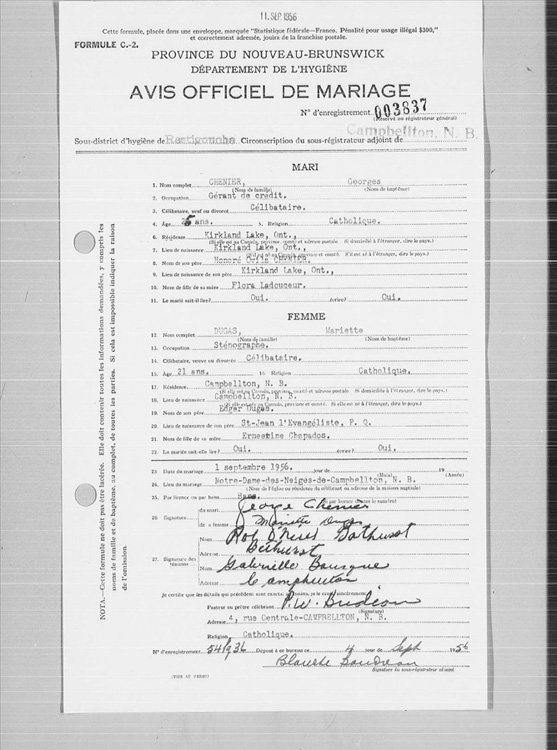 11 SEP 1956
Cette formule, placée dans une enveloppe, marquée "Statistique fédérale—Franco. Pénalité pour usage illégal $300,"
et correctement adressée, jouira de la franchise postale.
FORMULE C.-2.
PROVINCE DU NOUVEAU-BRUNSWICK
DÉPARTEMENT DE L'HYGIÈNE
AVIS OFFICIEL DE MARIAGE
N° d'enregistrement 003837
(Réservé au régistrateur général)
Sous-district d'hygiène de Restigouche Circonscription du sous-régistrateur adjoint de Campbellton, N. B.
MARI
1. Nom complet CHENIER, Georges
(Nom de famille) (Nom de baptême)
2. Occupation Gérant de crédit.
3. Célibataire, veuf ou divorcé Célibataire.
4. Age ans. 5. Religion Catholique.
6. Résidence Kirkland Lake, Ont.,
(Si elle est au Canada, province, comté et adresse postale Si domicilié à l'étranger, dire le pays.)
7. Lieu de naissance Kirkland Lake, Ont.,
8. Nom de son père Honoré Ovila CHENIER.
9. Lieu de naissance de son père Kirkland Lake, Ont.,
10. Nom de fille de sa mère Flora Ladouceur.
11. Le marié sait-il lire? Oui. écrire? Oui.
FEMME
12. Nom complet DUGAS, Mariette
(Nom de famille) (Nom de baptême)
13. Occupation Sténographe.
14. Célibataire, veuve ou divorcée Célibataire.
15. Age 21 ans. 16. Religion Catholique.
17. Résidence Campbellton, N. B.
(Si elle est au Canada, province, comté et adresse postale Si domiciliée à l'étranger, dire le pays.)
18. Lieu de naissance Campbellton, N. B.
19. Nom de son père Edgar Dugas.
20. Lieu de naissance de son père St-Jean l'Evangéliste, P. Q.
21. Nom de fille de sa mère Ernestine Chapados.
22. La mariée sait-elle lire? Oui. écrire? Oui.
23. Date du mariage 1 septembre 1956. jour de 19
(Mois) (Année)
24. Lieu du mariage Notre-Dame-des-Neiges-de-Campbellton, N. B.
25. Par licence ou par bans Bans.
26. Signature du mari George Chenier
de la femme Mariette Dugas
27. Signature des témoins Bathurst
Adresse Bathurst
Nom Gabrielle
Adresse Campbellton
Je certifie que les détails qui précèdent sont exacts
Pasteur ou prêtre célébrant P. W.
(Signature)
Adresse 4, rue Centrale-CAMPBELLTON, N. B.
Religion Catholique.
N° d'enregistrement Déposé à ce bureau ce 4 jour de Sept 1956
Blanche Boudreau
Signature du sous-régistrateur adjoint.
NOTA.—Cette formule ne doit pas être lacérée. Elle doit contenir toutes les informations demandées, y compris les
noms de famille et de baptême, au complet, de toutes les parties. Si cela est impossible indiquer la raison
de l'omission.